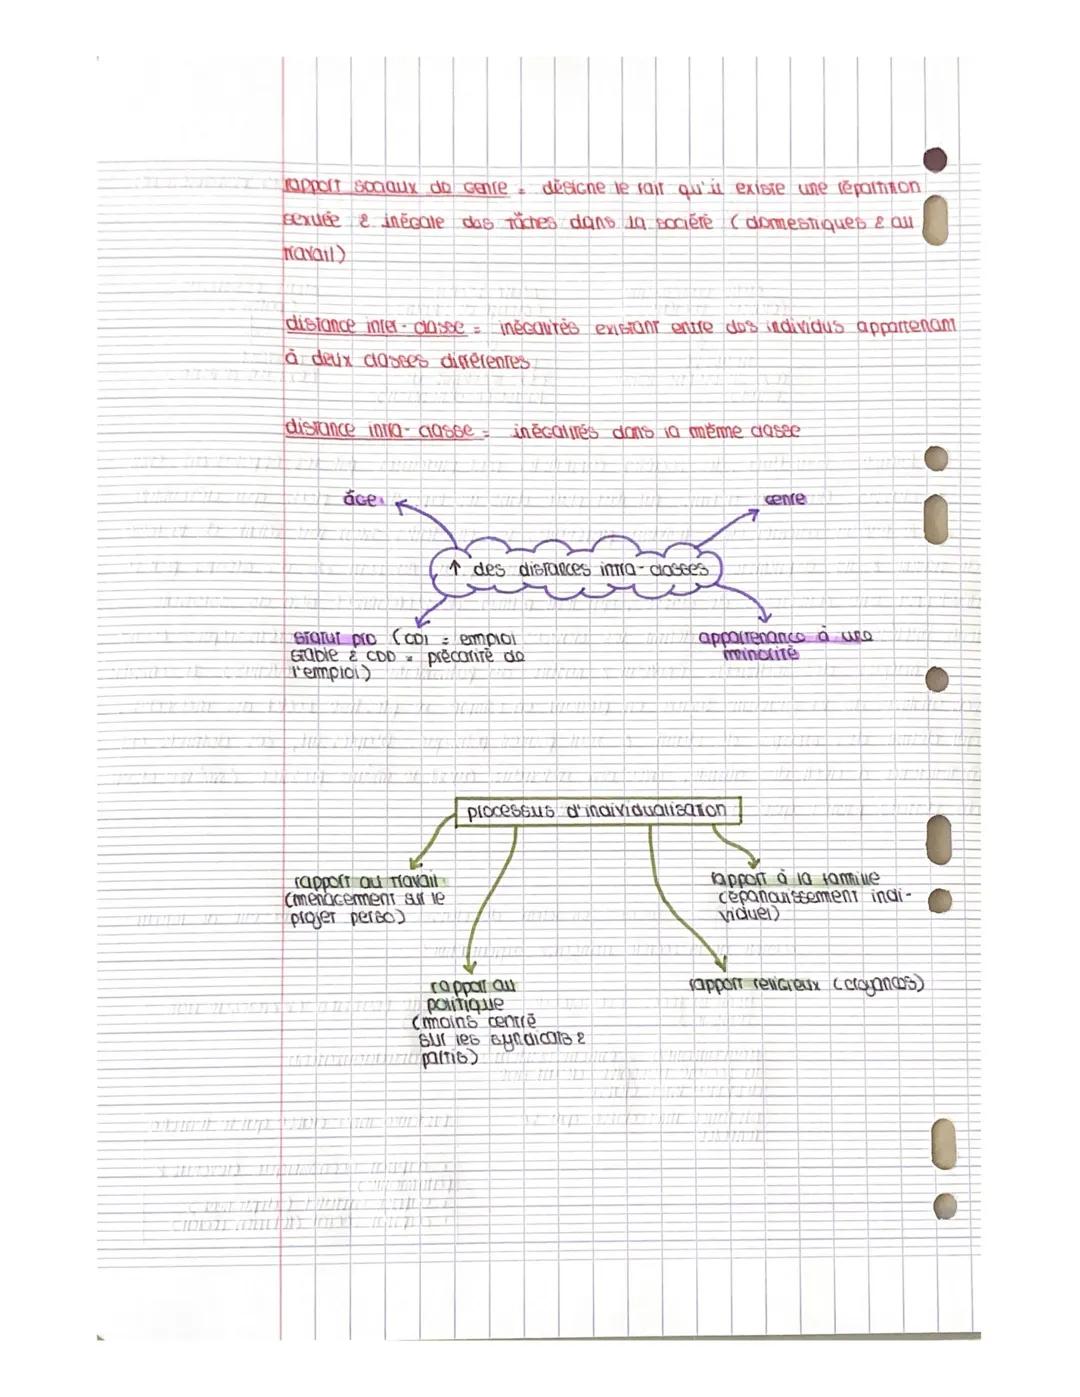 rapport sociaux de genre = désigne le fait qu'il existe une répartition
sexuée & inégale des tâches dans la société (domestiques & au
travail)
distance inter-classe = inégalités existant entre des individus appartenant
à deux classes différentes
distance intra-classe = inégalités dans la même classe
âge
genre
↑ des distances intra-classes
statut pro (CDI = emploi
stable & CDD = précarité de
l'emploi)
appartenance à une
minorité
processus d'individualisation
rapport au travail
(menacement sur le
projet perso)
rapport à la famille
(épanouissement indi-
viduel)
rapport au
politique
(moins centré
sur les syndicats &
partis)
rapport religieux (croyances)